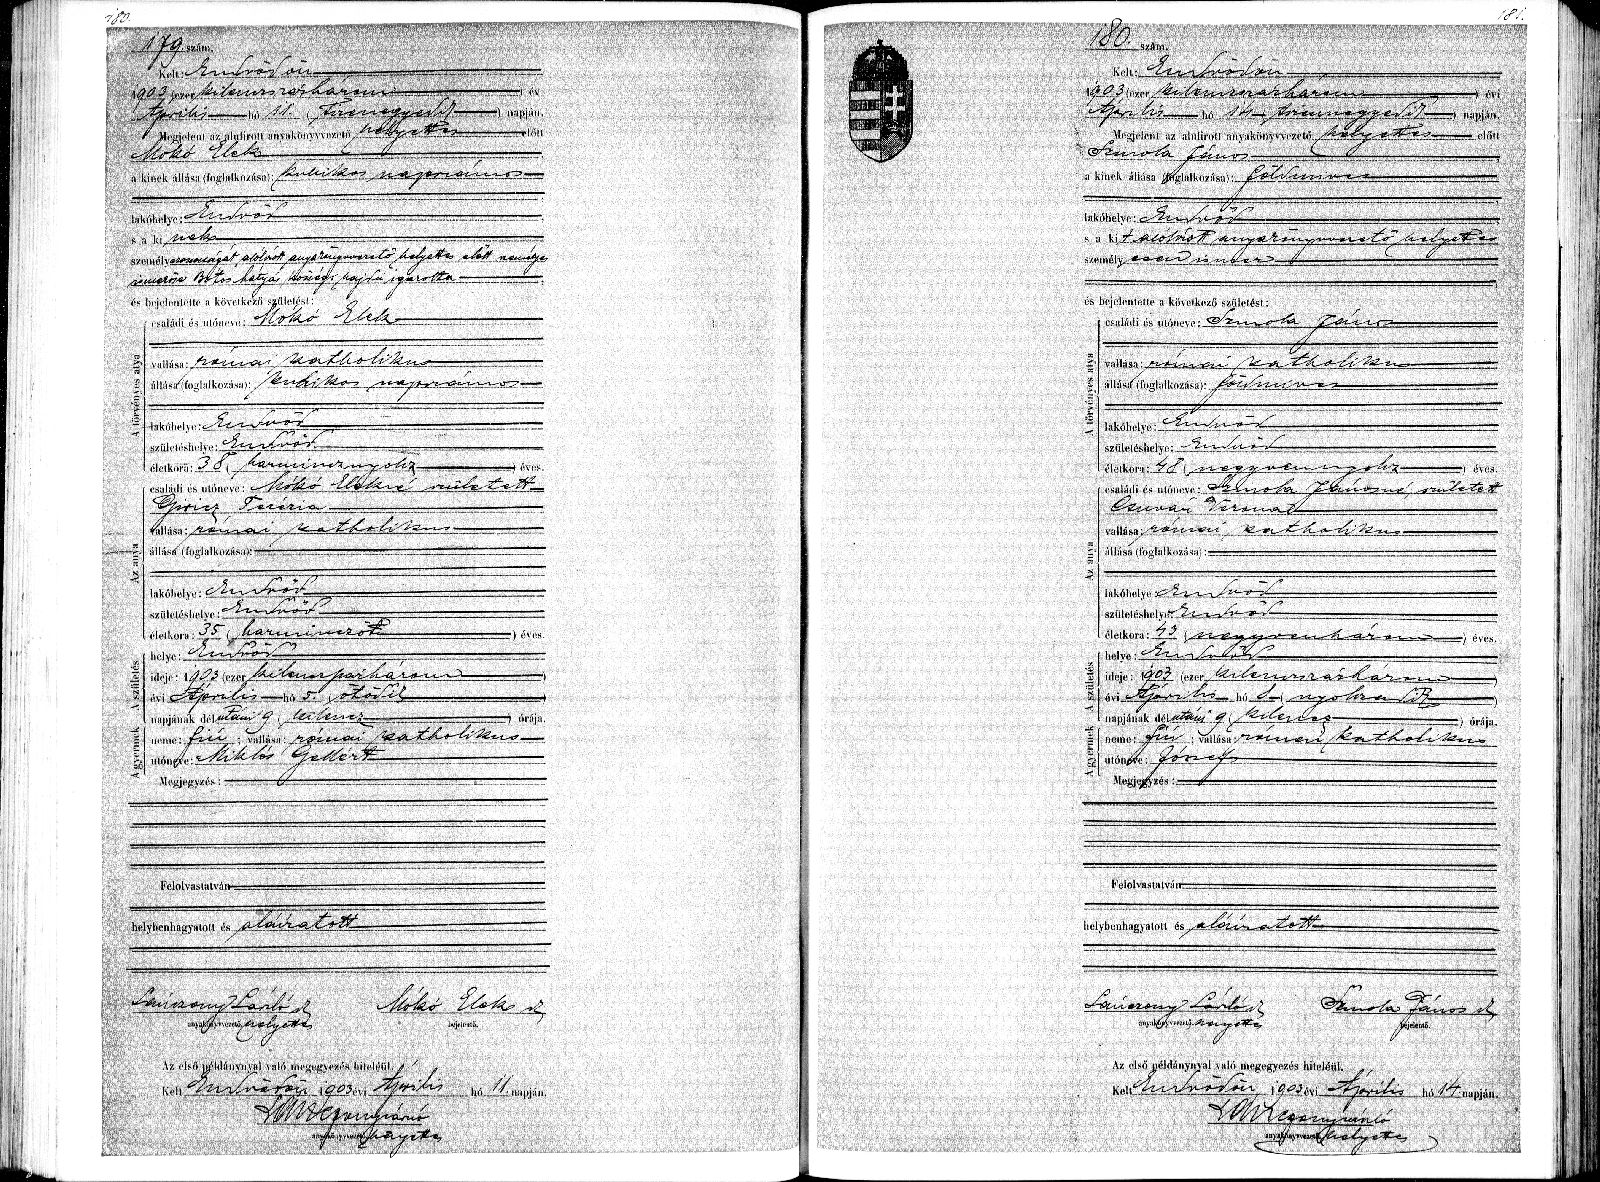 180.
179. szám.
Kelt: Endrődön
1903 (ezer kilenczszázhárom) év
Április hó 11. (tizenegyedik) napján.
Megjelent az alulirott anyakönyvvezető helyettes előtt
Mokó Elek
a kinek állása (foglalkozása): kubikos napszámos
lakóhelye: Endrőd
s a ki nek
személyazonosságát alólírott anyakönyvvezető helyettes előtt személye
ismerője hatyá községi hajdú igazolta
és bejelentette a következő születést:
A törvényes atya
családi és utóneve: Mokó Elek
vallása: római katholikus
állása (foglalkozása): kubikos napszámos
lakóhelye: Endrőd
születéshelye: Endrőd
életkora: 38 (harmincznyolcz) éves.
Az anya
családi és utóneve: Mokó Elekné született
Giricz Terézia
vallása: római katholikus
állása (foglalkozása):
lakóhelye: Endrőd
születéshelye: Endrőd
életkora: 35 (harminczöt) éves.
A születés
helye: Endrőd
ideje: 1903 (ezer kilenczszázhárom)
évi Április hó 5. (ötödik)
napjának délutáni 9 (kilencz) órája.
A gyermek
neme: fiú; vallása: római katholikus
utóneve: Miklós Gellért
Megjegyzés:
Felolvastatván
helybenhagyatott és aláíratott
László s.k. Mókó Elek s.k.
anyakönyvvezető helyettes bejelentő.
Az első példánynyal való megegyezés hiteléül.
Kelt Endrődön 1903 évi Április hó 11. napján.
anyakönyvvezető helyettes
181.
180. szám.
Kelt: Endrődön
1903 (ezer kilenczszázhárom) évi
Április hó 14 (tizennegyedik) napján.
Megjelent az alulirott anyakönyvvezető helyettes előtt
Szmola János
a kinek állása (foglalkozása): földmíves
lakóhelye: Endrőd
s a ki t alólírott anyakönyvvezető helyettes
személyesen ismer
és bejelentette a következő születést:
A törvényes atya
családi és utóneve: Szmola János
vallása: római katholikus
állása (foglalkozása): földmíves
lakóhelye: Endrőd
születéshelye: Endrőd
életkora: 48 (negyvennyolcz) éves.
Az anya
családi és utóneve: Szmola Jánosné, született
Csuvar Verona
vallása: római katholikus
állása (foglalkozása):
lakóhelye: Endrőd
születéshelye: Endrőd
életkora: 43 (negyvenhárom) éves.
A születés
helye: Endrőd
ideje: 1903 (ezer kilenczszázhárom)
évi Április hó 8. (nyolczadik)
napjának délutáni 9 (kilencz) órája.
A gyermek
neme: fiú; vallása: római katholikus
utóneve: József
Megjegyzés:
Felolvastatván
helybenhagyatott és aláíratott
László s.k. Szmola János s.k.
anyakönyvvezető helyettes bejelentő.
Az első példánynyal való megegyezés hiteléül.
Kelt Endrődön 1903 évi Április hó 14 napján.
anyakönyvvezető helyettes